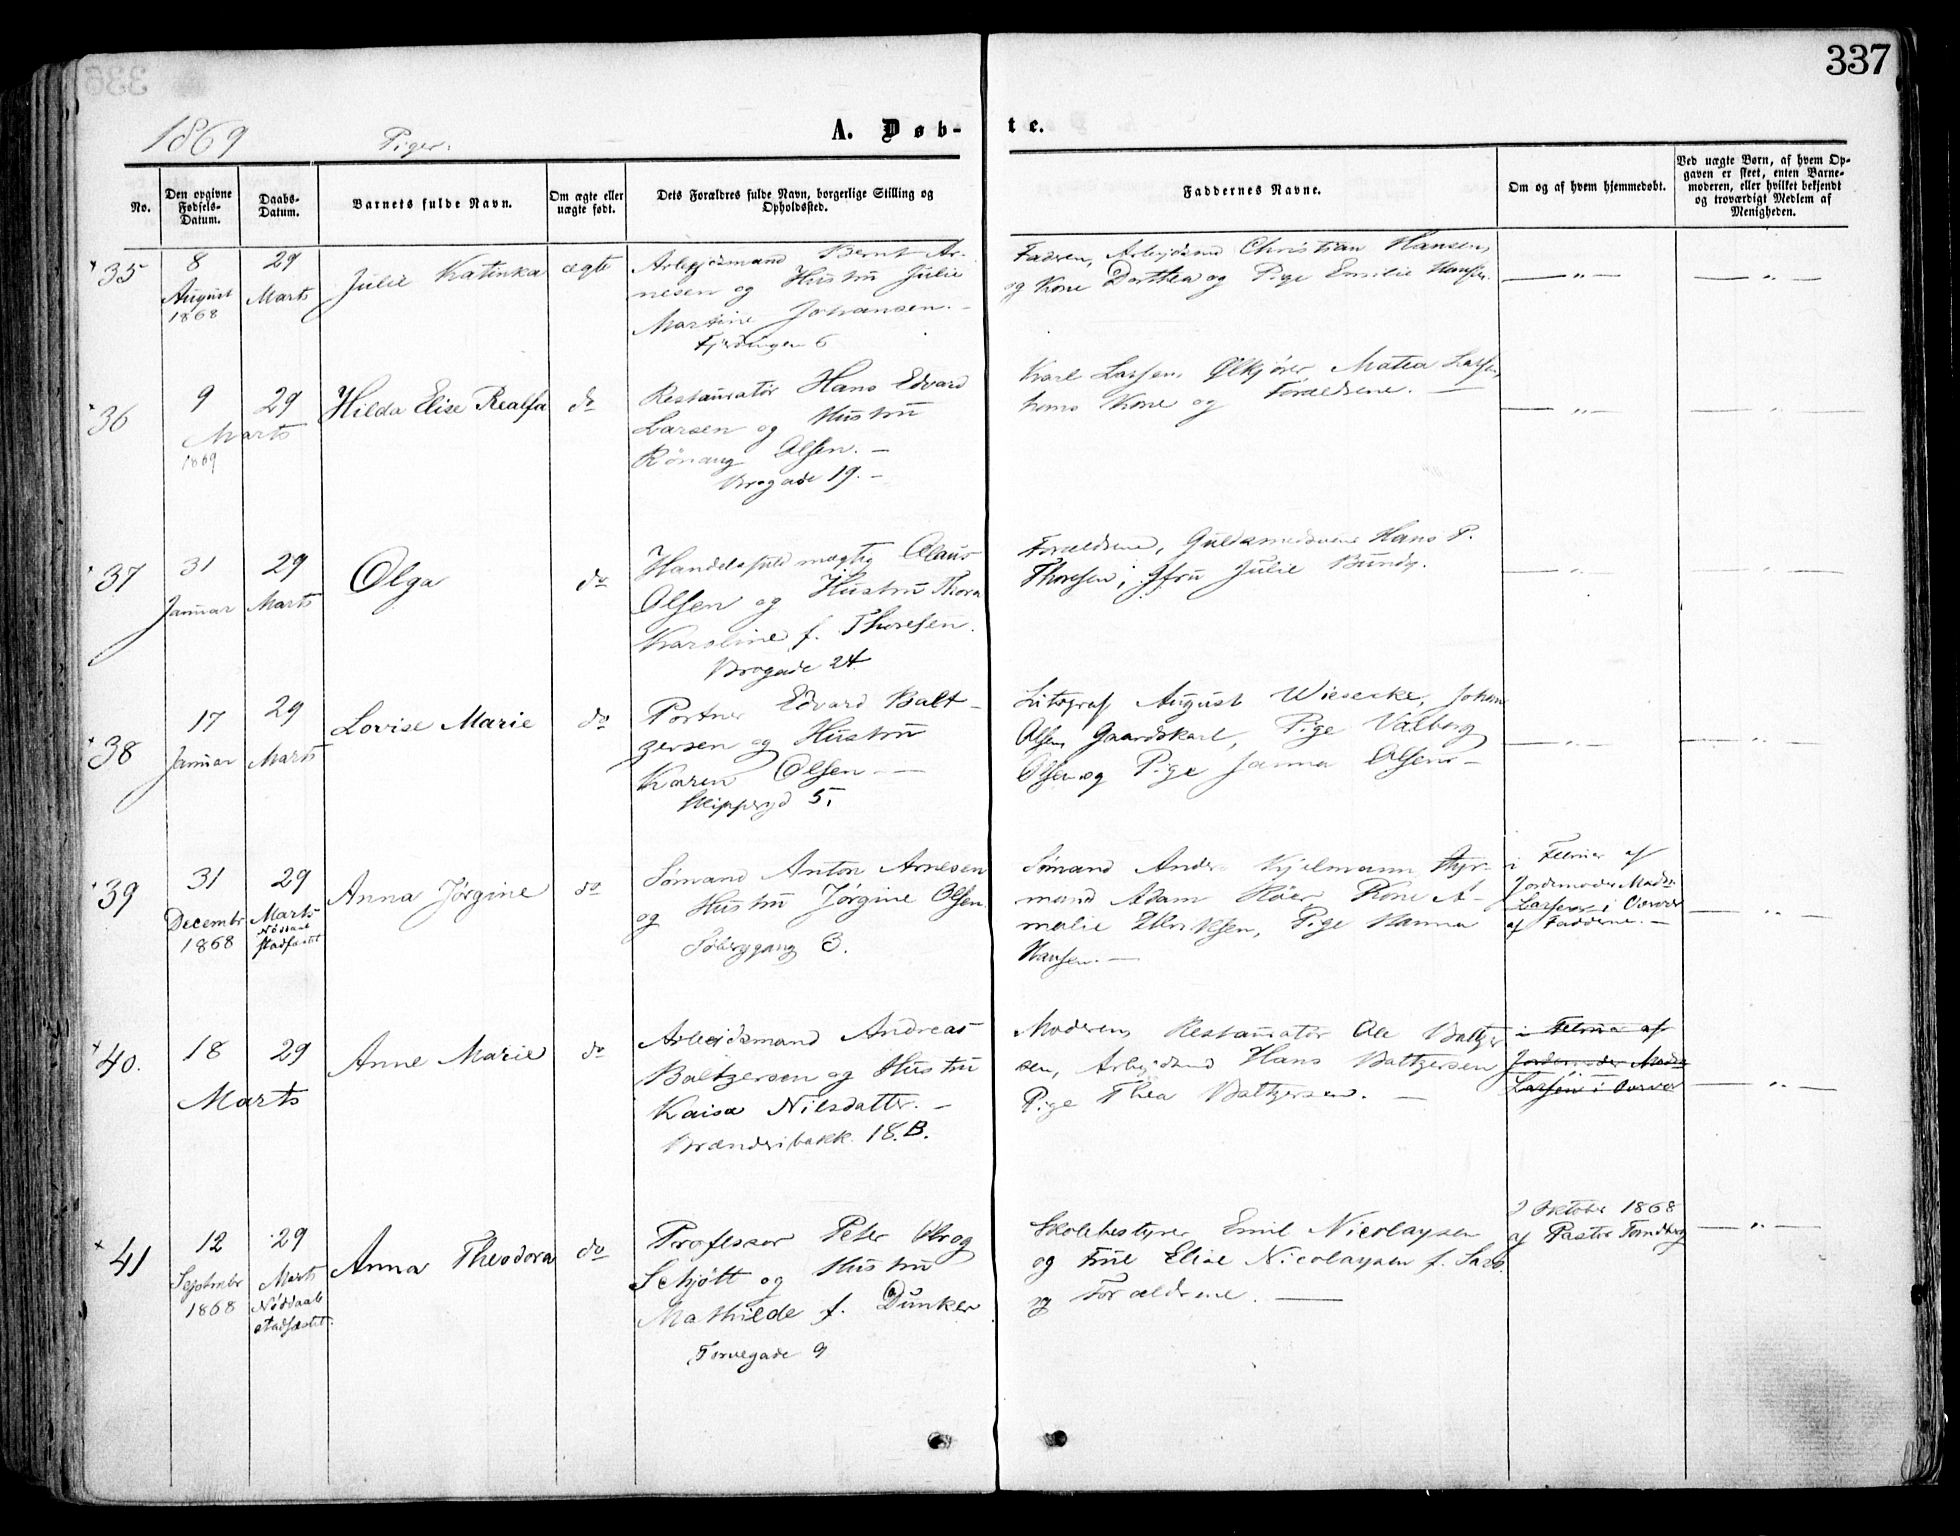 337
1869
Piger.
A. Døb-
te.
No.
Den opgivne Fødsels-Datum.
Daabs-Datum.
Barnets fulde Navn.
Om ægte eller uægte født.
Dets Forældres fulde Navn, borgerlige Stilling og Opholdssted.
Faddernes Navne.
Om og af hvem hjemmedøbt.
Ved uægte Børn, af hvem Opgaven er skeet, enten Barnemoderen, eller hvilket bekjendt og troværdigt Medlem af Menigheden.
35
8
August
1868
29
Marts
Julie Katinka
ægte
Arbejdsmand Bernt Ar-
nesen og Hustru Julie
Martine Johansen. -
Fjerdingen 6
Faderen, Arbejdsmd Christian Hansen,
og Kone Dorthea og Pige Emilie Hansen.
— „ —
— „ —
36
9
29
Marts
1869
Hilda Elise Realfa
do
Restauratør Hans Edvard
Larsen og Hustru
Rønaug Olsen. -
Brogade 19. -
Karl Larsen, Ølkjører, Matea Larsen,
hans Kone og Forældrene. —
— „ —
— „ —
37
31
Januar
29
Marts
Olga
do
Handelsfuldmægtig Olaus
Olsen og Hustru Thora
Karoline f. Thoresen.
Brogade 24.
Forældrene, Guldsmedsvend Hans P.
Thoresen, Jfru Julie Bundy.
— „ —
— „ —
38
17
Januar
29
Marts
Lovise Marie
do
Portner Edvard Balt-
zersen og Hustru
Karen Olsen —
Skippergd 5.
Litograf August Wiesecke, Johan
Olsen, Gaardskarl, Pige Valborg
Olsen og Pige Janna Olsen. -
— „ —
— „ —
39
31
Decembr
1868
29
Marts
stadfæstet
Anna Jørgine
do
Sømand Anton Arnesen
og Hustru Jørgine Olsen.
Søberggang 3.
Sømand Anders Kjelmann, Styr-
mand Adam Høier, Kone A-
malie Eriksen, Pige Hanna
Hansen. —
i Februar af
Jordemoder Mad.
Larsen i Overvær
af Fadderne. -
— „ —
40.
18
29
Marts
Anne Marie
do
Arbeidsmand Andreas
Baltzersen og Hustru
Kaisa Nilsdatter. -
Brænderibakk. 18.B.
Moderen, Restauratør Ole Baltzer
sen, Arbejdsmd Hans Baltzersen
Pige Thea Baltzersen. —
i Februar af
Jordemoder Mad.
Larsen i Overvær
— „ —
41
12
Septmbr
1868
29
Marts
Nøddaab
stadfæstet.
Anna Theodora
do
Professor Peter Krog
Schjøtt og Hustru
Mathilde f. Dunker
Torvegade 9
Skolebestyrer Emil Nicolaysen
og Frue Elise Nicolaysen f. Sars.
og Forældrene. —
2 Oktober 1868
af Pastor Tandberg
— „ —